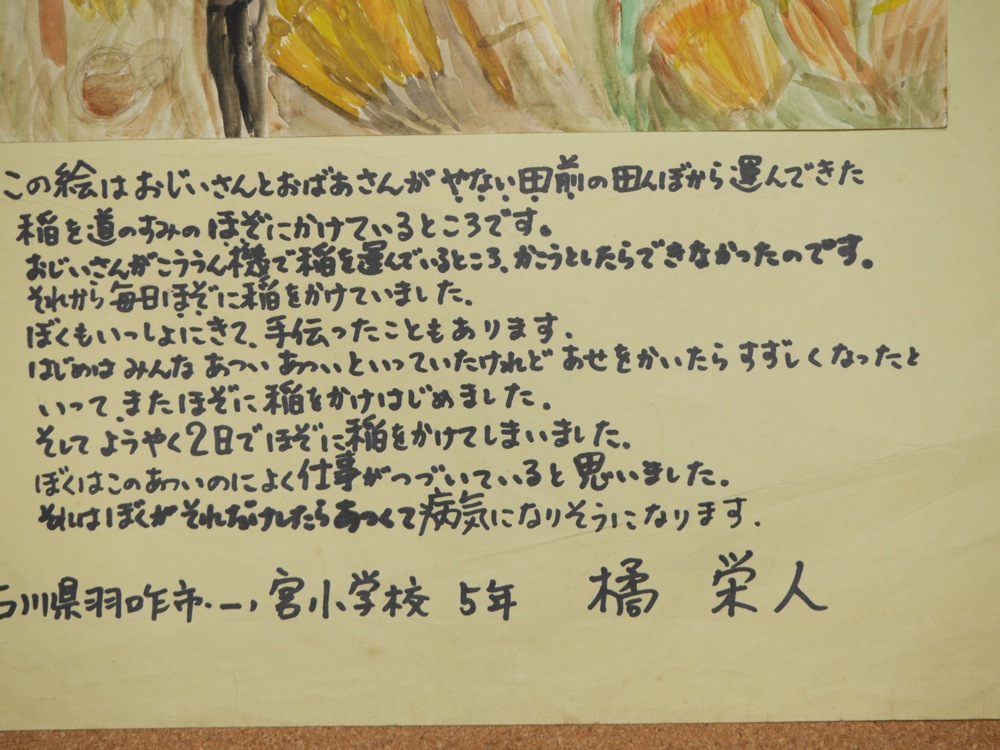 この絵はおじいさんとおばあさんがやない田前の田んぼから運んできた
稲を道のすみのほぞにかけているところです。
おじいさんがこううん機で稲を運んでいるところ、かこうとしたらできなかったのです。
それから毎日ほぞに稲をかけていました。
ぼくもいっしょにきて、手伝ったこともあります。
はじめはみんなあつい あついといっていたけれど あせをかいたらすずしくなったと
いって、またほぞに稲をかけはじめました。
そしてようやく2日でほぞに稲をかけてしまいました。
ぼくはこのあついのによく仕事がつづいていると思いました。
それはぼくがそれだけしたらあつくて病気になりそうになります。
石川県羽咋市・一ノ宮小学校 5年 橘 栄人